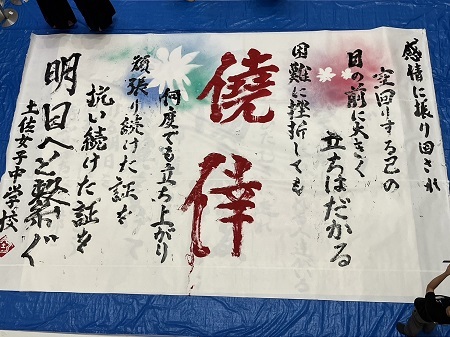 感情に振り回され
空回りする己の
目の前に大きく
立ちはだかる
困難に挫折しても
僥倖
何度でも立ち上がり
頑張り続けた証を
抗い続けた証を
明日へと繋ぐ
土佐女子中学校